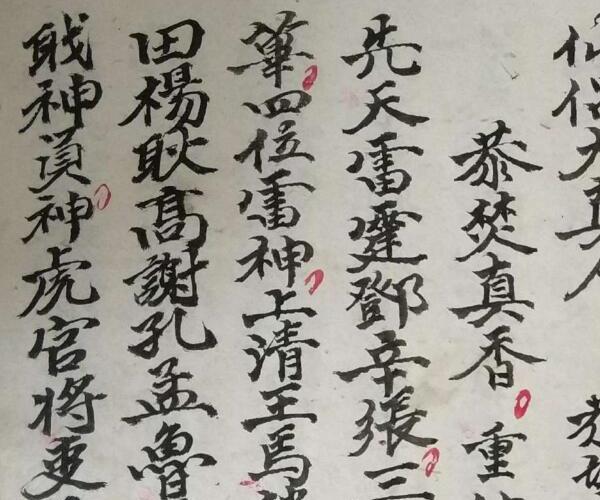 仙侶大真人 恭
恭焚真香 重
先天雷霆鄧辛張三
筆四位雷神上清王馬
田楊耿高謝孔孟魯
戝神負神虎官將吏